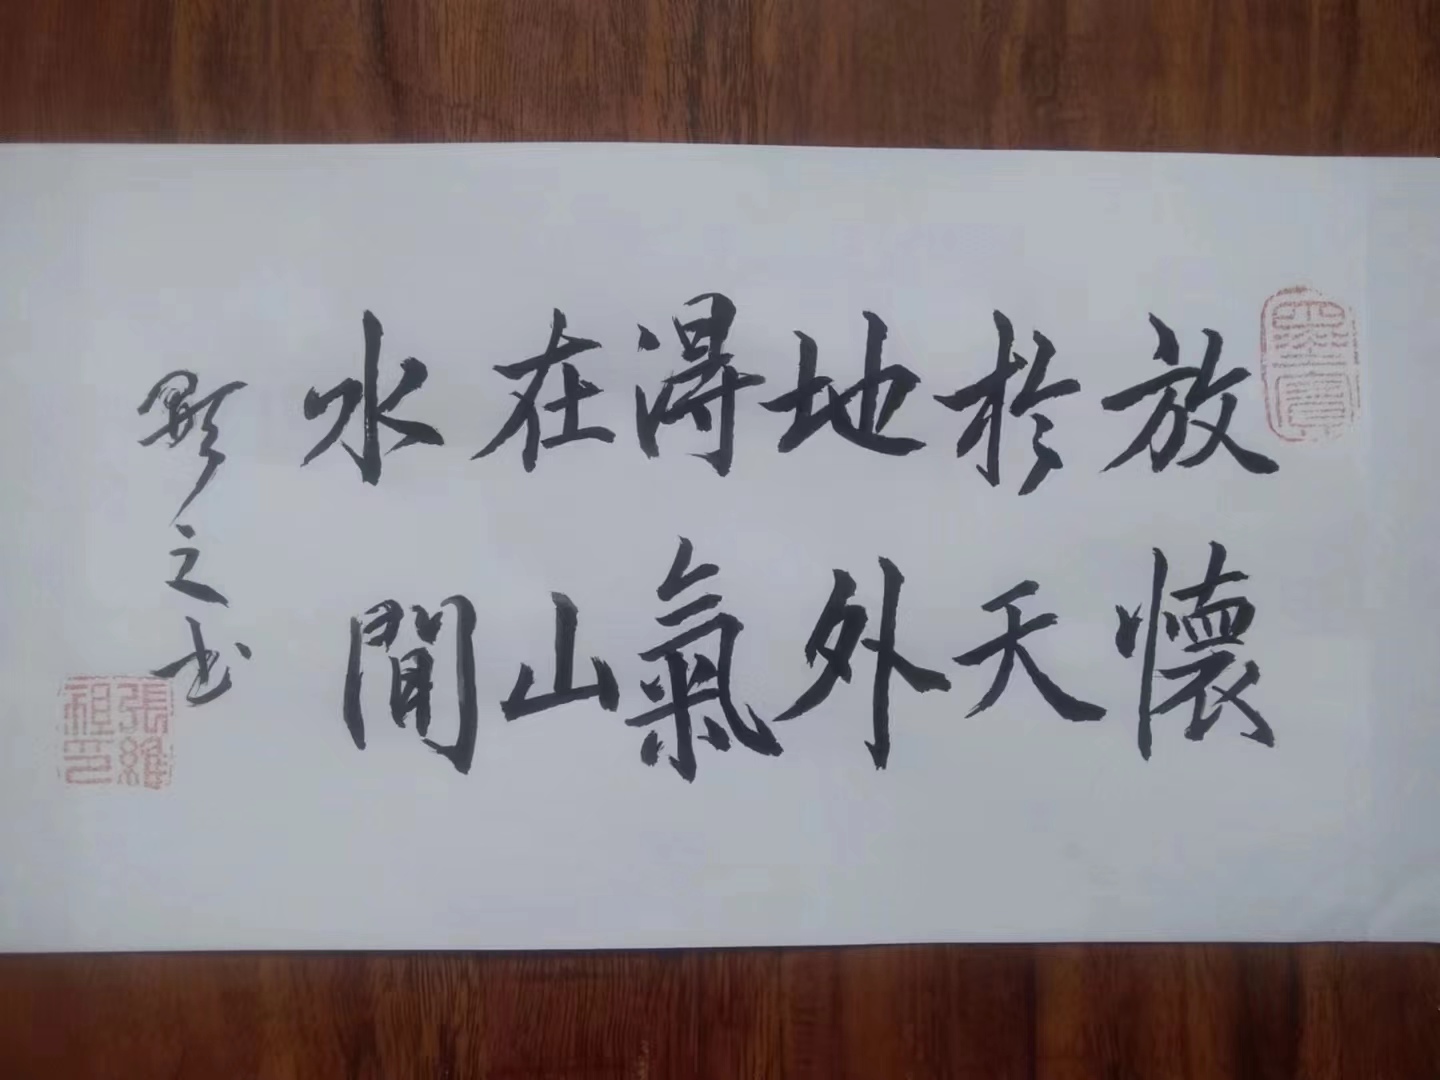 墨寶
放懷
於天
地外
得氣
在山
水間
之书
張維祖印